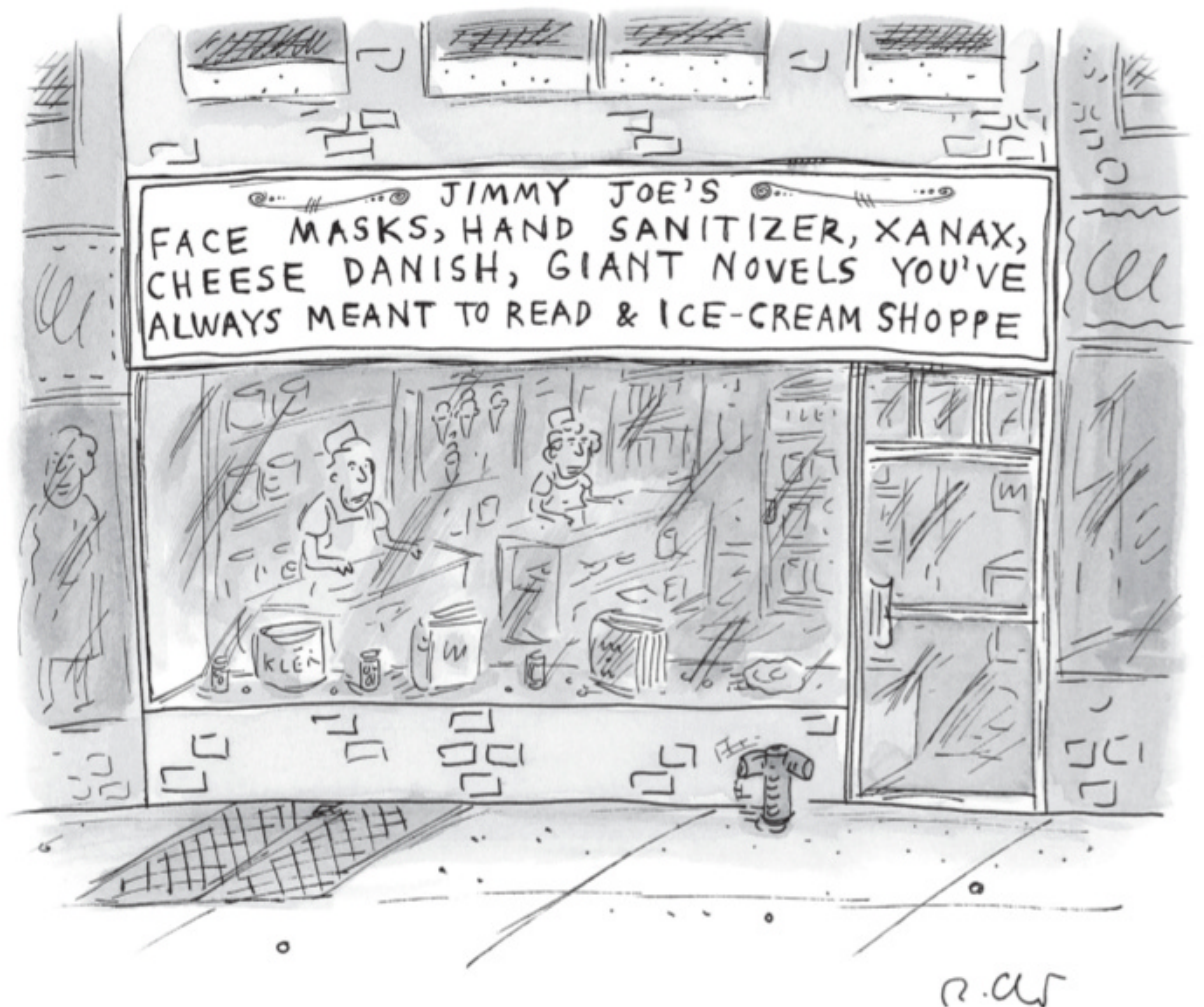 JIMMY JOE'S
FACE MASKS, HAND SANITIZER, XANAX,
CHEESE DANISH, GIANT NOVELS YOU'VE
ALWAYS MEANT TO READ & ICE-CREAM SHOPPE